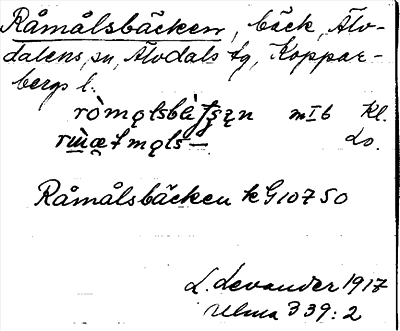 Råmålsbäcken, bäck, Älv-
dalens sn, Älvdals tg, Koppar-
bergs l.
mIb kl.
Do.
Råmålsbäcken kG10750
L. Levander 1917
Ulma 339:2